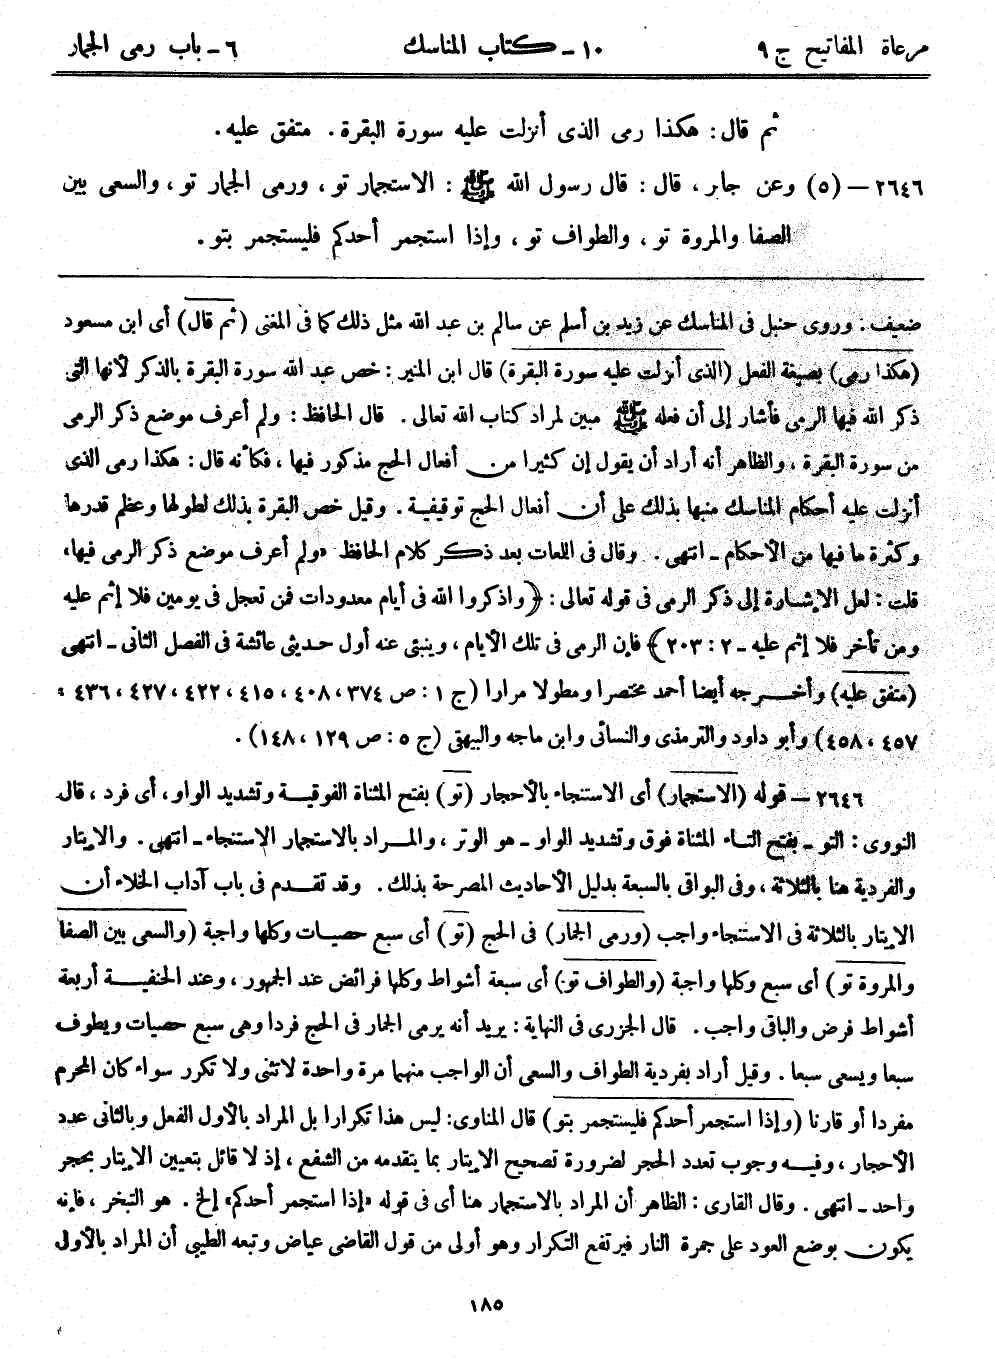 مرعاة المفاتيح ج ٩ ١٠ - كتاب المناسك ٦ - باب رمى الجمار
ثم قال : هكذا رمى الذى أنزلت عليه سورة البقرة . متفق عليه .
٢٦٤٦ – (٥) وعن جابر ، قال : قال رسول الله ﷺ : الاستجمار تو ، ورمى الجمار تو ، والسعى بين
الصفا والمروة تو ، والطواف تو ، وإذا استجمر أحدكم فليستجمر بتو .
ضعيف : وروى حنبل فى المناسك عن زيد بن أسلم عن سالم بن عبد الله مثل ذلك كما فى المغنى (ثم قال) أى ابن مسعود
(هكذا رمى) بصيغة الفعل (الذى أنزلت عليه سورة البقرة) قال ابن المنير : خص عبد الله سورة البقرة بالذكر لأنها التى
ذكر الله فيها الرمى فأشار إلى أن فعله ﷺ مبين لمراد كتاب الله تعالى . قال الحافظ : ولم أعرف موضع ذكر الرمى
من سورة البقرة ، والظاهر أنه أراد أن يقول إن كثيرا من أفعال الحج مذكور فيها ، فكأنه قال : هكذا رمى الذى
أنزلت عليه أحكام المناسك منبها بذلك على أن أفعال الحج توقيفية . وقيل خص البقرة بذلك لطولها وعظم قدرها
وكثرة ما فيها من الأحكام - انتهى . وقال فى اللعات بعد ذكر كلام الحافظ «ولم أعرف موضع ذكر الرمى فيها»
قلت : لعل الإشارة إلى ذكر الرمى فى قوله تعالى : ﴿واذكروا الله فى أيام معدودات فمن تعجل فى يومين فلا إثم عليه
ومن تأخر فلا إثم عليه - ٢ : ٢٠٣﴾ فإن الرمى فى تلك الأيام ، وينبئ عنه أول حديثى عائشة فى الفصل الثانى - انتهى
(متفق عليه) وأخرجه أيضا أحمد مختصرا ومطولا مرارا (ج ١ : ص ٣٧٤ ، ٤٠٨ ، ٤١٥ ، ٤٢٢ ، ٤٢٧ ، ٤٣٦ ،
٤٥٧ ، ٤٥٨) وأبو داود والترمذى والنسائى وابن ماجه والبيهقى (ج ٥ : ص ١٢٩ ، ١٤٨) .
٢٦٤٦ – قوله (الاستجمار) أى الاستنجاء بالأحجار (تو) بفتح المثناة الفوقية وتشديد الواو ، أى فرد ، قال
النووى : التو - بفتح التاء المثناة فوق وتشديد الواو - هو الوتر ، والمراد بالاستجمار الاستنجاء - انتهى . والإيتار
والفردية هنا بالثلاثة ، وفى البواقى بالسبعة بدليل الأحاديث المصرحة بذلك . وقد تقدم فى باب آداب الخلاء أن
الإيتار بالثلاثة فى الاستنجاء واجب (ورمى الجمار) فى الحج (تو) أى سبع حصيات وكلها واجبة (والسعى بين الصفا
والمروة تو) أى سبع وكلها واجبة (والطواف تو) أى سبعة أشواط وكلها فرائض عند الجمهور ، وعند الحنفية أربعة
أشواط فرض والباقى واجب . قال الجزرى فى النهاية : يريد أنه يرمى الجمار فى الحج فردا وهى سبع حصيات ويطوف
سبعا ويسعى سبعا . وقيل أراد بفردية الطواف والسعى أن الواجب منهما مرة واحدة لاتثنى ولا تكرر سواء كان المحرم
مفردا أو قارنا (وإذا استجمر أحدكم فليستجمر بتو) قال المناوى : ليس هذا تكرارا بل المراد بالأول الفعل وبالثانى عدد
الأحجار ، وفيه وجوب تعدد الحجر لضرورة تصحيح الإيتار بما يتقدمه من الشفع ، إذ لا قائل بتعيين الإيتار بحجر
واحد - انتهى . وقال القارى : الظاهر أن المراد بالاستجمار هنا أى فى قوله «إذا استجمر أحدكم» إلخ . هو التبخر ، فإنه
يكون بوضع العود على جمرة النار فيرتفع التكرار وهو أولى من قول القاضى عياض وتبعه الطيبى أن المراد بالأول
١٨٥